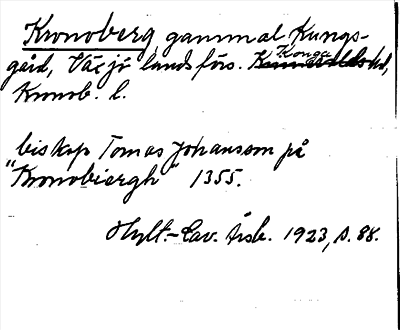 Kronoberg gammal Kungs-
gård, Växjö landsförs. Konga hd,
Kronob. l.
biskop Tomas Johansson på
"Kronobiergh" 1355.
Hylt.-Cav. Årsb. 1923, s. 88.